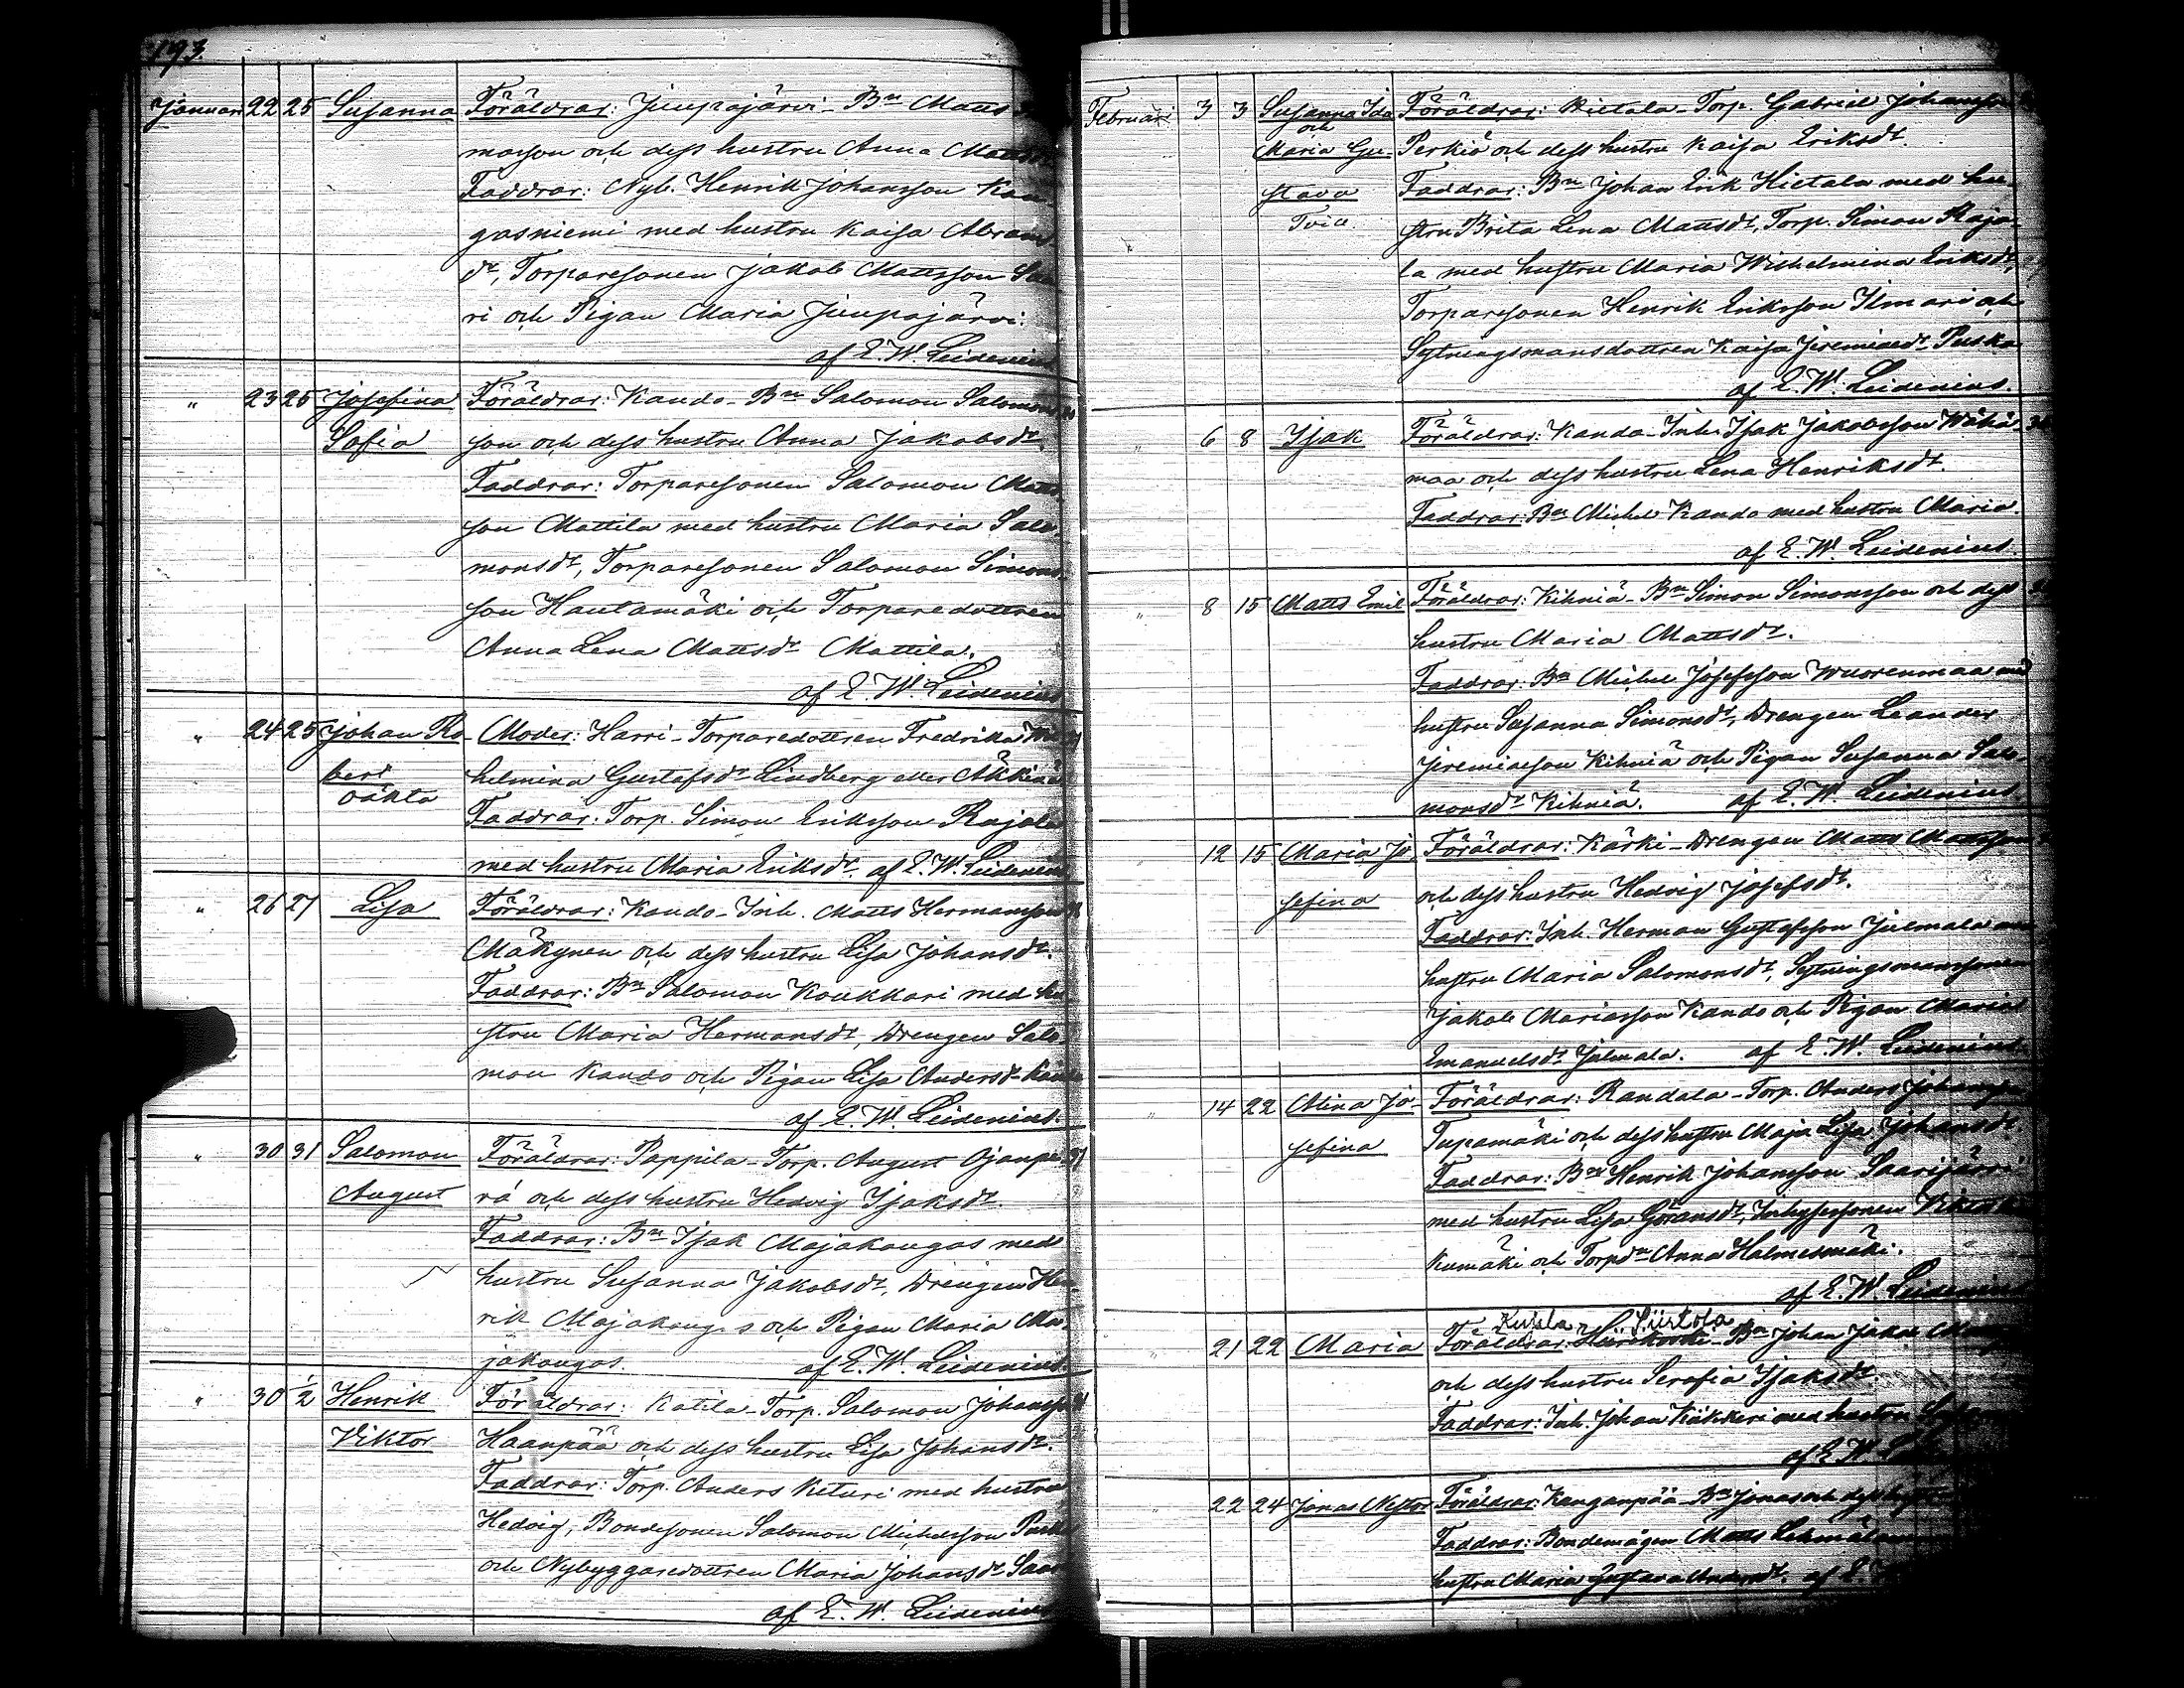 193.
Januari 22 25 Susanna Föräldrar: Juupajärvi - Bn Matts
masson och dess hustru Anna Matts
Faddrar: Nyb. Henrik Johansson Kan-
gasniemi med hustru Kaisa Abrams-
dr, Torparesonen Jakob Mattsson
ri och Pigan Maria Juupajärvi.
af E. W. Leidenius
" 23 25 Josefina Föräldrar: Kando - Bn Salomon Salomons
Sofia son och dess hustru Anna Jakobsdr.
Faddrar: Torparesonen Salomon Matts
son Mattila med hustru Maria Salo-
monsdr, Torparesonen Salomon Simons-
son Hautamäki och Torparedottren
Anna Lena Mattsdr Mattila.
af E. W. Leidenius
" 24 25 Johan Ro- Moder: Harri - Torparedottren Fredrika Wil
bert helmina Gustafsdr Lindberg eller Äkkinä
oäkta Faddrar: Torp. Simon Eriksson Rajala
med hustru Maria Eriksdr. af E. W. Leidenius
" 26 27 Lisa Föräldrar: Kando - Inh. Matts Hermansson
Mäkynen och dess hustru Lisa Johansdr.
Faddrar: Bn Salomon Koukkari med hu
stru Maria Hermansdr, Drengen Salo
mon Kando och Pigan Lisa Andersdr Kando
af E. W. Leidenius.
" 30 31 Salomon Föräldrar: Pappila - Torp. August Ojanpe-
August rä och dess hustru Hedvig Isaksdr.
Faddrar: Bn Isak Majakangas med
hustru Susanna Jakobsdr, Drengen Hen-
rik Majakangas och Pigan Maria Ma-
jakangas. af E. W. Leidenius.
" 30 1/2 Henrik Föräldrar: Katila - Torp. Salomon Johansson
Viktor Haanpää och dess hustru Lisa Johansdr.
Faddrar: Torp. Anders Keturi med hustru
Hedvig, Bondesonen Salomon Michelsson
och Nybyggaredottren Maria Johansdr
af E. W. Leidenius
Februari 3 3 Susanna Ida Föräldrar: Hietala - Torp. Gabriel Johansson
och
Maria Gu- Perkiö och dess hustru Kaisa Eriksdr.
stava Faddrar: Bn Johan Erik Hietala med hu-
Tvill. stru Brita Lena Mattsdr, Torp. Simon Raja-
la med hustru Maria Wilhelmina Eriksdr,
Torparesonen Henrik Eriksson Ilmari och
Sytningsmansdottren Kaisa Jeremiaedr Puska
af E. W. Leidenius.
" 6 8 Isak Föräldrar: Kando - Inh. Isak Jakobsson Wähä-
maa och dess hustru Lena Henriksdr.
Faddrar: Bn Michel Kando med hustru Maria.
af E. W. Leidenius.
" 8 15 Matts Emil Föräldrar: Kihniä - Bn Simon Simonsson och dess
hustru Maria Mattsdr.
Faddrar: Bn Michel Josefsson Wuorenmaa med
hustru Susanna Simonsdr, Drengen Leander
Jeremiaeson Kihniä och Pigan Susanna Salo-
monsdr Kihniä. af E. W. Leidenius.
12 15 Maria Jo- Föräldrar: Kärki - Drengen Matts Mattsson
sefina och dess hustru Hedvig Josefsdr.
Faddrar: Inh. Herman Gustafsson Julmala
hustru Maria Salomonsdr, Sytningsmanssonen
Jakob Mariasson Kando och Pigan Maria
Emanuelsdr Julmala. af E. W. Leidenius.
" 14 22 Alina Jo- Föräldrar: Randala - Torp. Anders Johansson
sefina Tupamäki och dess hustru Maja Lisa Johansdr.
Faddrar: Bn Henrik Johansson Saarijärvi
med hustru Lisa Göransdr, Inhysessonen Viktor
kumäki och Torpdn Anna Halmesmäki.
af E. W. Leidenius
Siirtola
21 22 Maria Föräldrar: Bn Johan Jakob
och dess hustru Serafia Isaksdr.
Faddrar: Inh. Johan Kükkeri med hustru
af E. W.
" 22 24 Jonas Nestor Föräldrar: Kanganpää - Bn Jonas och dess
Faddrar: Bondemågen Matts
hustru Maria Gustava Andersdr. af E.